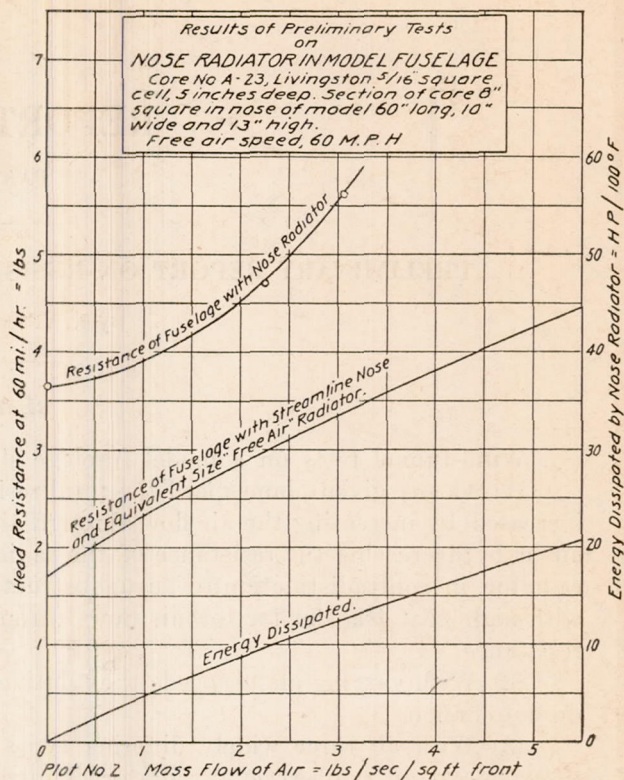 Results of Preliminary Tests
on
NOSE RADIATOR IN MODEL FUSELAGE
Core No A-23, Livingston 5/16" square
cell, 5 inches deep. Section of core 8"
square in nose of model 60" long, 10"
wide and 13" high.
Free air speed, 60 M.P.H
Head Resistance at 60 mi./hr. = lbs
7
6
5
4
3
2
1
0
Resistance of Fuselage with Nose Radiator
Resistance of Fuselage with Streamline Nose
and Equivalent Size "Free Air" Radiator.
Energy Dissipated.
Energy Dissipated by Nose Radiator = HP/100°F
60
50
40
30
20
10
0
1
2
3
4
5
Plot No 2 Mass Flow of Air = lbs/sec/sq ft front